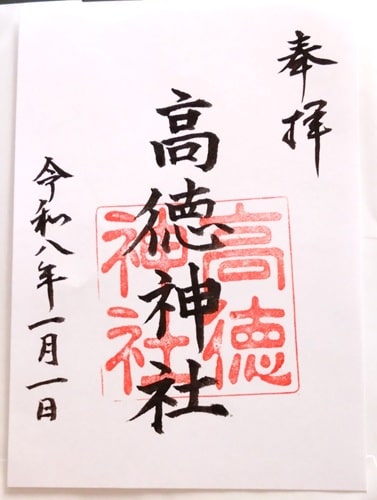 奉拝
高徳神社
高徳
神社
令和八年一月一日